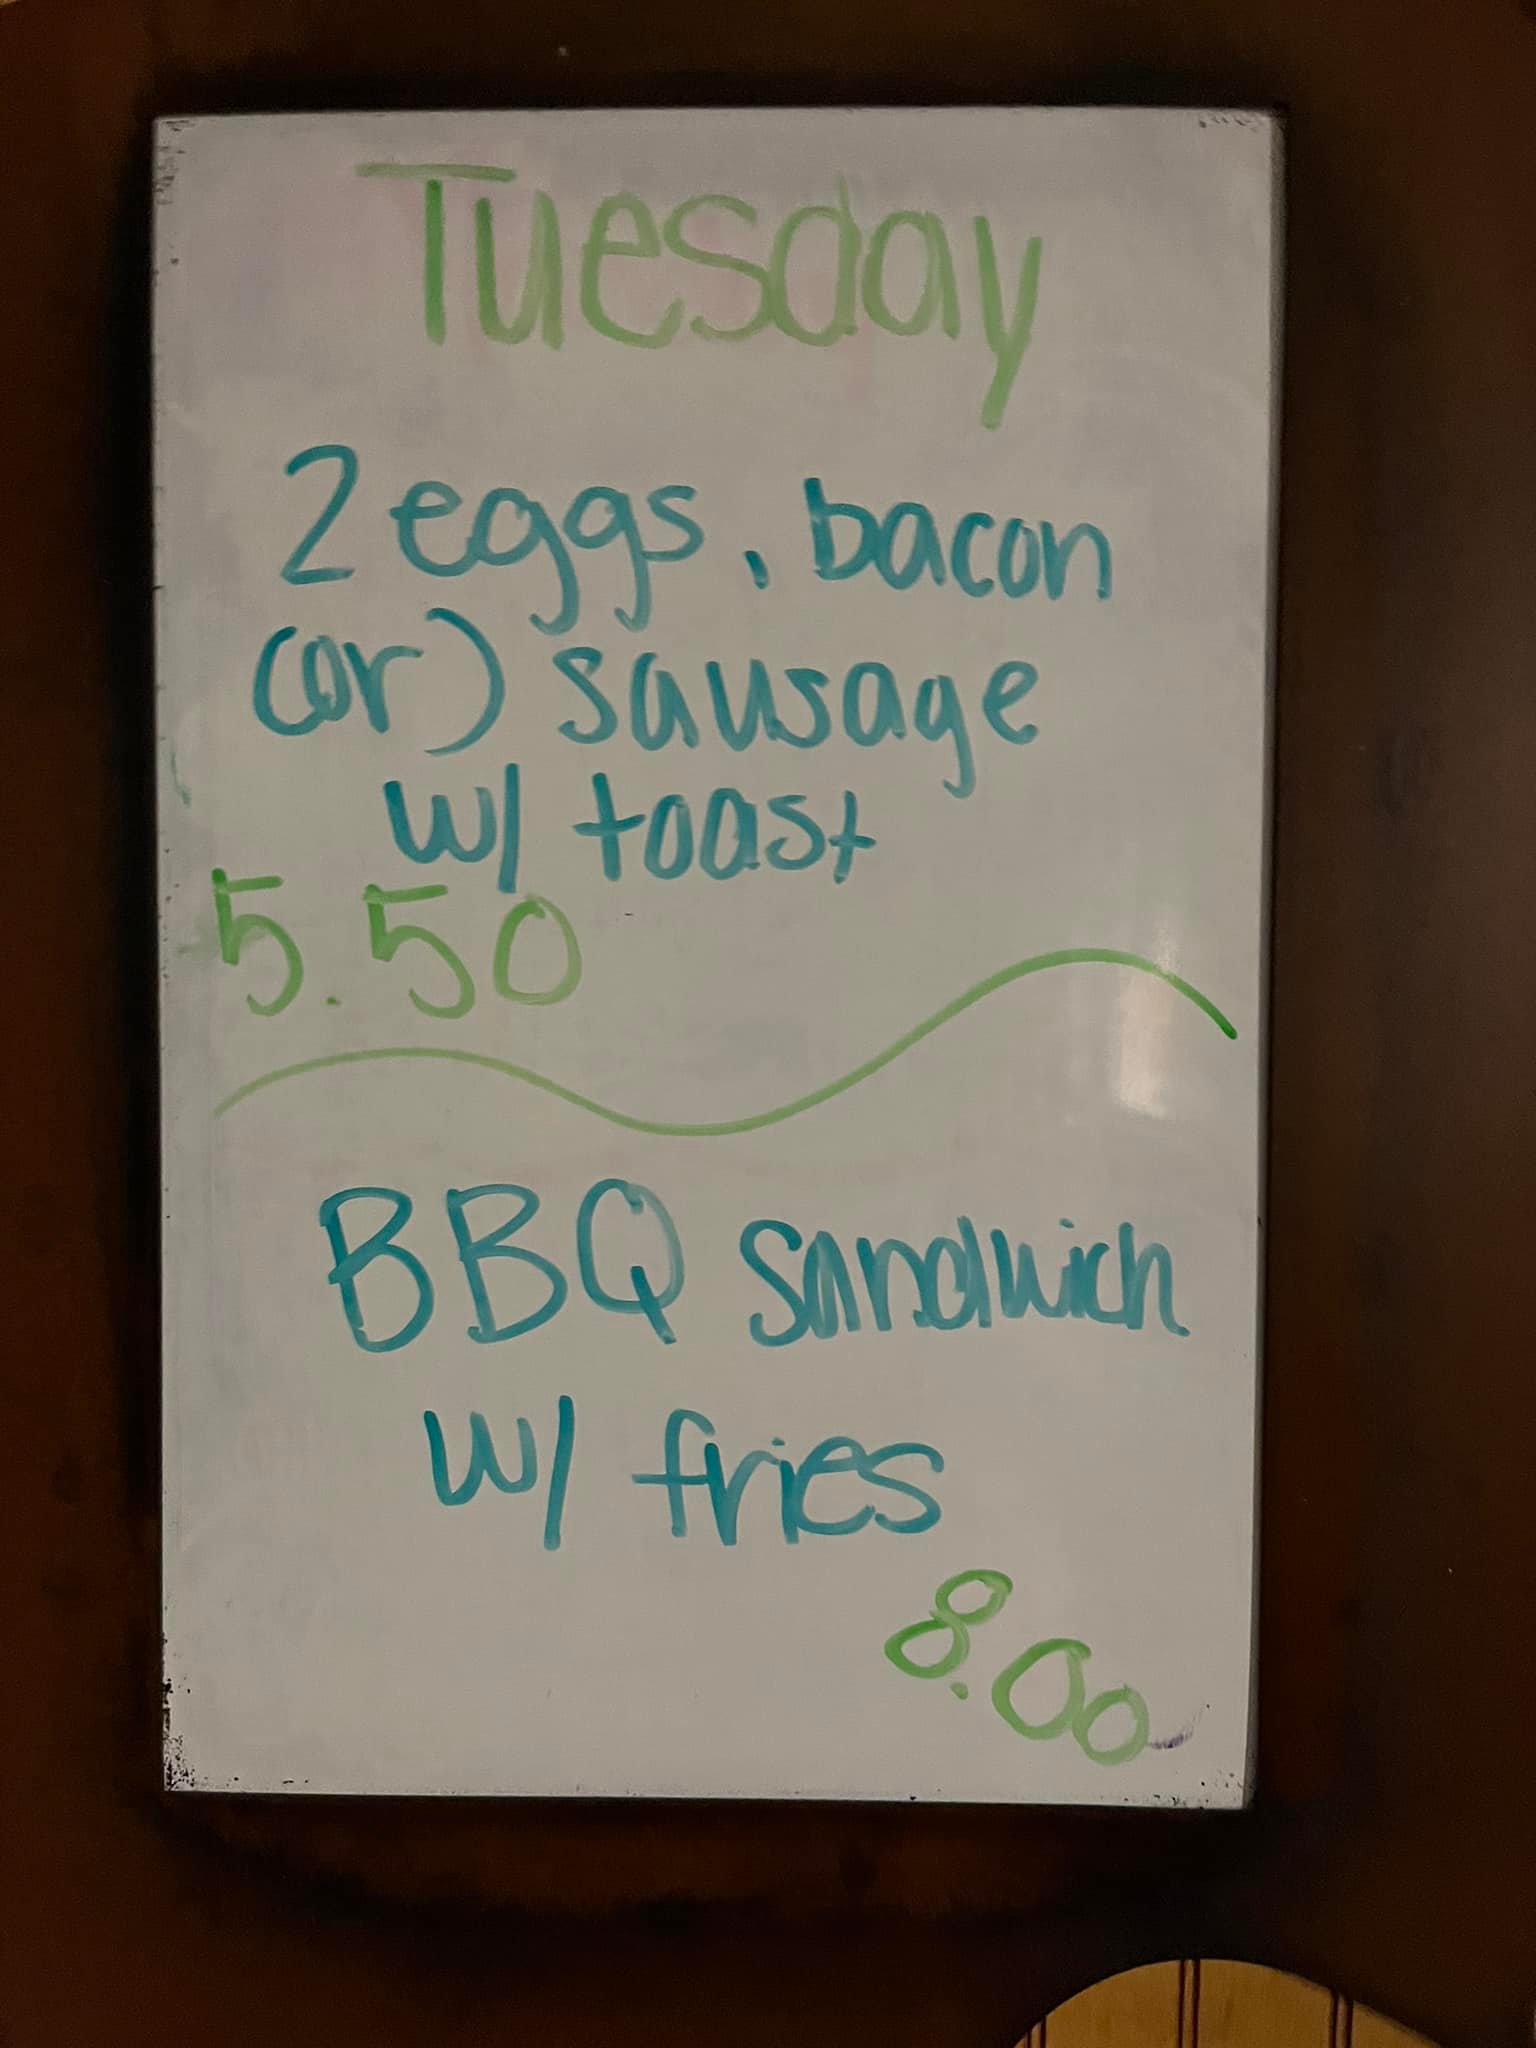 Tuesday
2 eggs, bacon
(or) sausage
w/ toast
5.50
BBQ sandwich
w/ fries
8.00